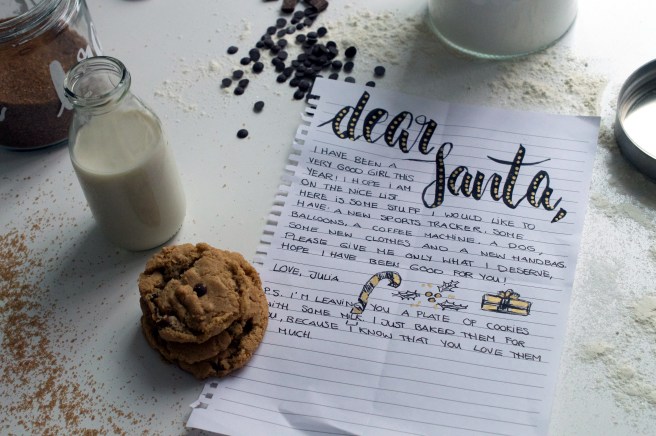 dear
Santa,
I HAVE BEEN A
VERY GOOD GIRL THIS
YEAR! I HOPE I AM
ON THE NICE LIST.
HERE IS SOME STUFF I WOULD LIKE TO
HAVE: A NEW SPORTS TRACKER, SOME
BALLOONS, A COFFEE MACHINE, A DOG,
SOME NEW CLOTHES AND A NEW HANDBAG.
PLEASE GIVE ME ONLY WHAT I DESERVE,
HOPE I HAVE BEEN GOOD FOR YOU!
LOVE, JULIA
P.S. I'M LEAVING YOU A PLATE OF COOKIES
WITH SOME MILK. I JUST BAKED THEM FOR
YOU, BECAUSE I KNOW THAT YOU LOVE THEM
MUCH.